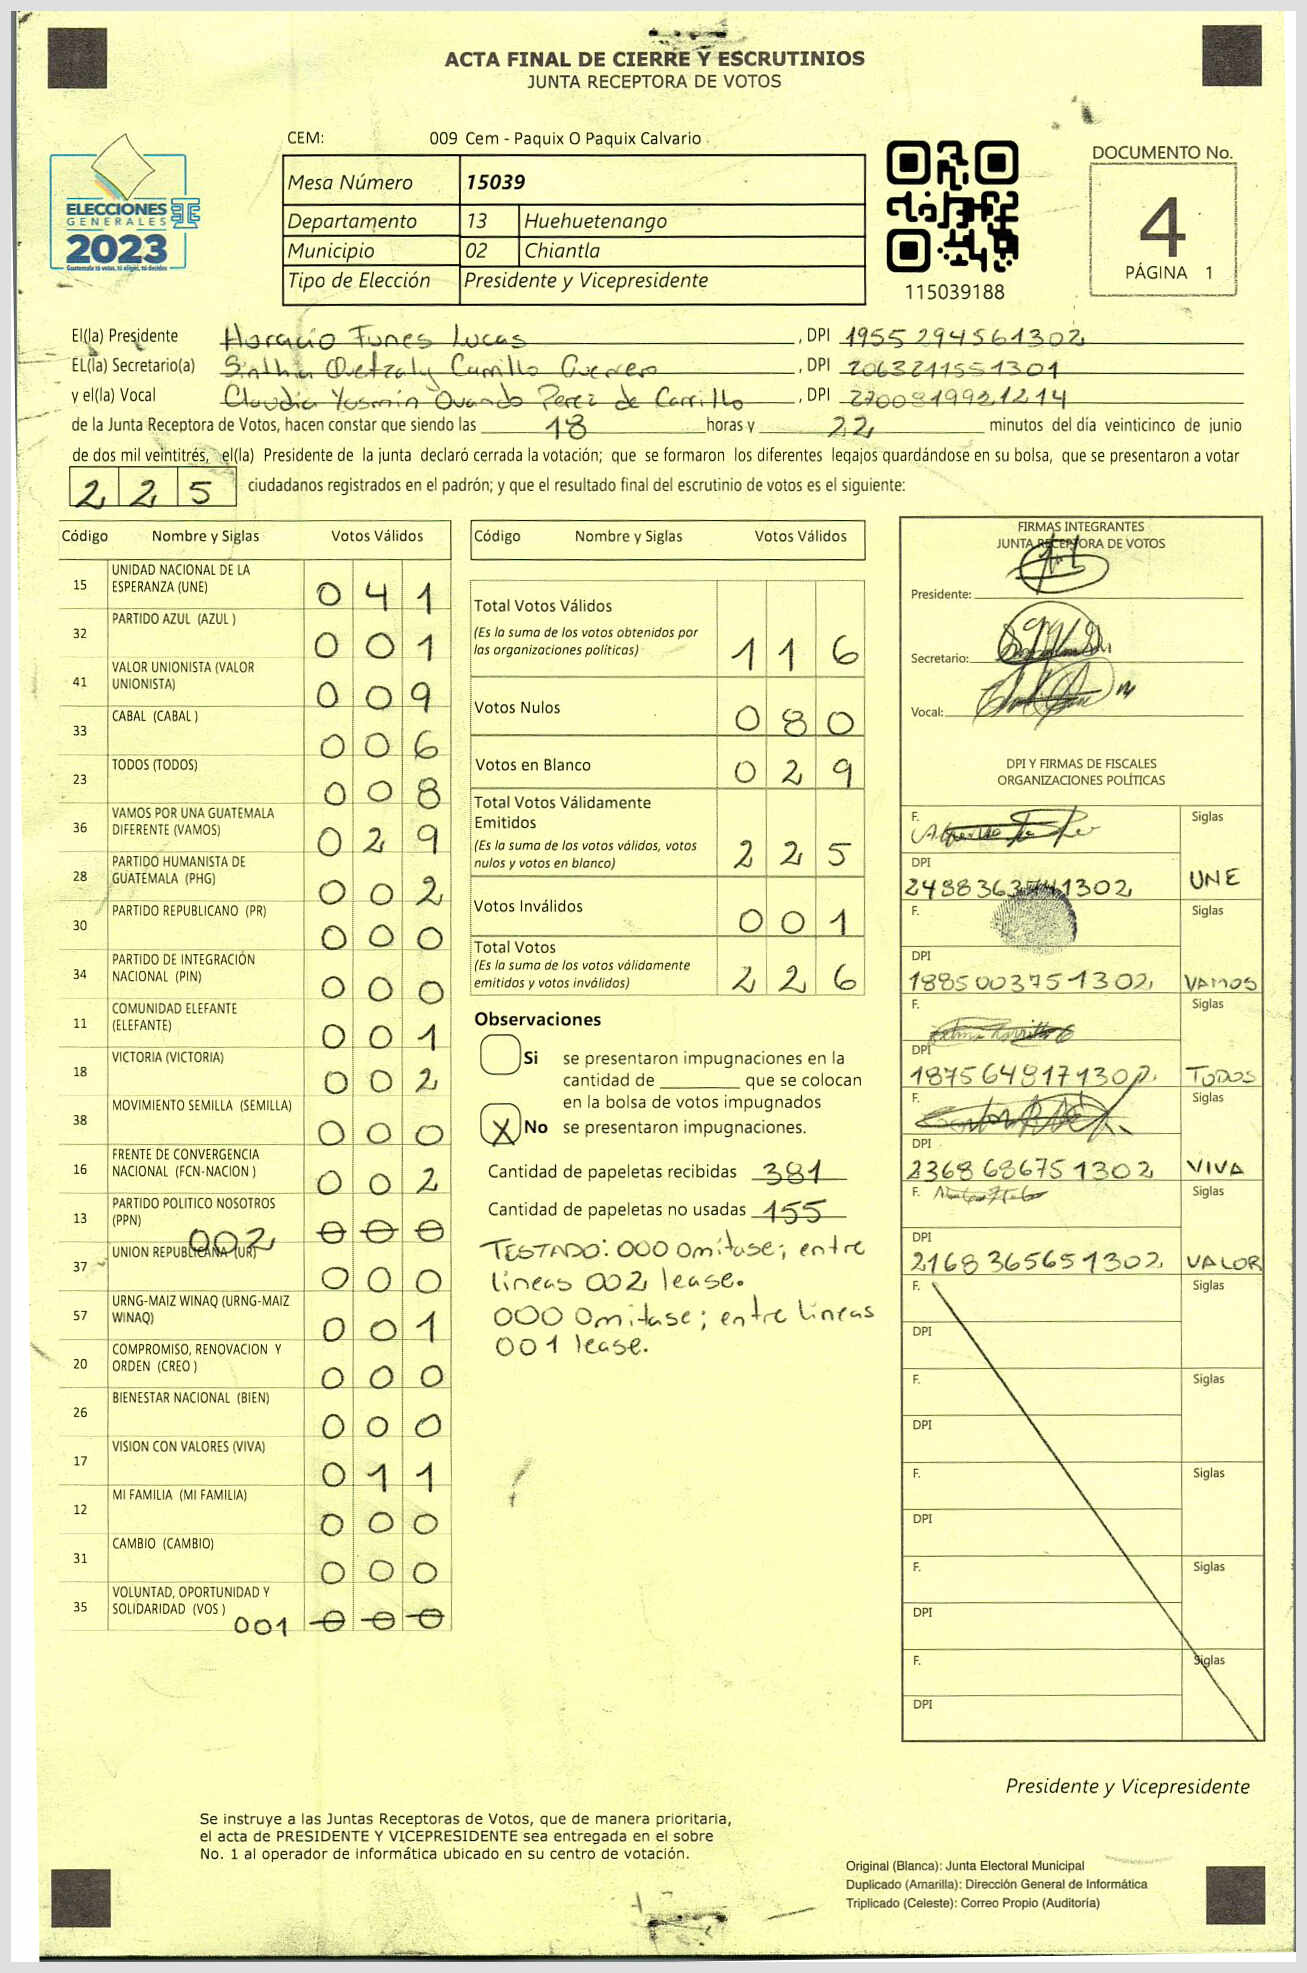 ACTA FINAL DE CIERRE Y ESCRUTINIOS
JUNTA RECEPTORA DE VOTOS
CEM: 009 Cem - Paquix O Paquix Calvario
ELECCIONES
GENERALES
2023
Guatemala tú votas, tú eliges, tú decides
Mesa Número 15039
Departamento 13 Huehuetenango
Municipio 02 Chiantla
Tipo de Elección Presidente y Vicepresidente
115039188
DOCUMENTO No.
4
PÁGINA 1
El(la) Presidente Horacio Funes Lucas, DPI 1955294561302
EL(la) Secretario(a) Sinthia Quetzaly Carrillo Guerrero, DPI 2063211551301
y el(la) Vocal Claudia Yosmin Ovando Perez de Carrillo, DPI 2700819921214
de la Junta Receptora de Votos, hacen constar que siendo las 18 horas y 22 minutos del día veinticinco de junio
de dos mil veintitrés, el(la) Presidente de la junta declaró cerrada la votación; que se formaron los diferentes legajos guardándose en su bolsa, que se presentaron a votar
225 ciudadanos registrados en el padrón; y que el resultado final del escrutinio de votos es el siguiente:
Código Nombre y Siglas Votos Válidos
15 UNIDAD NACIONAL DE LA ESPERANZA (UNE) 041
32 PARTIDO AZUL (AZUL ) 001
41 VALOR UNIONISTA (VALOR UNIONISTA) 009
33 CABAL (CABAL ) 006
23 TODOS (TODOS) 008
36 VAMOS POR UNA GUATEMALA DIFERENTE (VAMOS) 029
28 PARTIDO HUMANISTA DE GUATEMALA (PHG) 002
30 PARTIDO REPUBLICANO (PR) 000
34 PARTIDO DE INTEGRACIÓN NACIONAL (PIN) 000
11 COMUNIDAD ELEFANTE (ELEFANTE) 001
18 VICTORIA (VICTORIA) 002
38 MOVIMIENTO SEMILLA (SEMILLA) 000
16 FRENTE DE CONVERGENCIA NACIONAL (FCN-NACION ) 002
13 PARTIDO POLITICO NOSOTROS (PPN) 002 000
37 UNION REPUBLICANA (UR) 000
57 URNG-MAIZ WINAQ (URNG-MAIZ WINAQ) 001
20 COMPROMISO, RENOVACION Y ORDEN (CREO ) 000
26 BIENESTAR NACIONAL (BIEN) 000
17 VISION CON VALORES (VIVA) 011
12 MI FAMILIA (MI FAMILIA) 000
31 CAMBIO (CAMBIO) 000
35 VOLUNTAD, OPORTUNIDAD Y SOLIDARIDAD (VOS ) 001 000
Código Nombre y Siglas Votos Válidos
Total Votos Válidos
(Es la suma de los votos obtenidos por
las organizaciones políticas) 116
Votos Nulos 080
Votos en Blanco 029
Total Votos Válidamente
Emitidos
(Es la suma de los votos válidos, votos
nulos y votos en blanco) 225
Votos Inválidos 001
Total Votos
(Es la suma de los votos válidamente
emitidos y votos inválidos) 226
Observaciones
Si se presentaron impugnaciones en la
cantidad de ________ que se colocan
en la bolsa de votos impugnados
X No se presentaron impugnaciones.
Cantidad de papeletas recibidas 381
Cantidad de papeletas no usadas 155
TESTADO: 000 Omitase; entre
lineas 002 lease.
000 Omitase; entre lineas
001 lease.
FIRMAS INTEGRANTES
JUNTA RECEPTORA DE VOTOS
Presidente:
Secretario:
Vocal:
DPI Y FIRMAS DE FISCALES
ORGANIZACIONES POLÍTICAS
F. Siglas
DPI
UNE
F. Siglas
DPI
1885003751302 VAMOS
F. Siglas
DPI
TODOS
F. Siglas
DPI
2368686751302 VIVA
F. Siglas
DPI
2168365651302 VALOR
F. Siglas
DPI
F. Siglas
DPI
F. Siglas
DPI
F. Siglas
DPI
F. Siglas
DPI
Presidente y Vicepresidente
Se instruye a las Juntas Receptoras de Votos, que de manera prioritaria,
el acta de PRESIDENTE Y VICEPRESIDENTE sea entregada en el sobre
No. 1 al operador de informática ubicado en su centro de votación.
Original (Blanca): Junta Electoral Municipal
Duplicado (Amarilla): Dirección General de Informática
Triplicado (Celeste): Correo Propio (Auditoría)